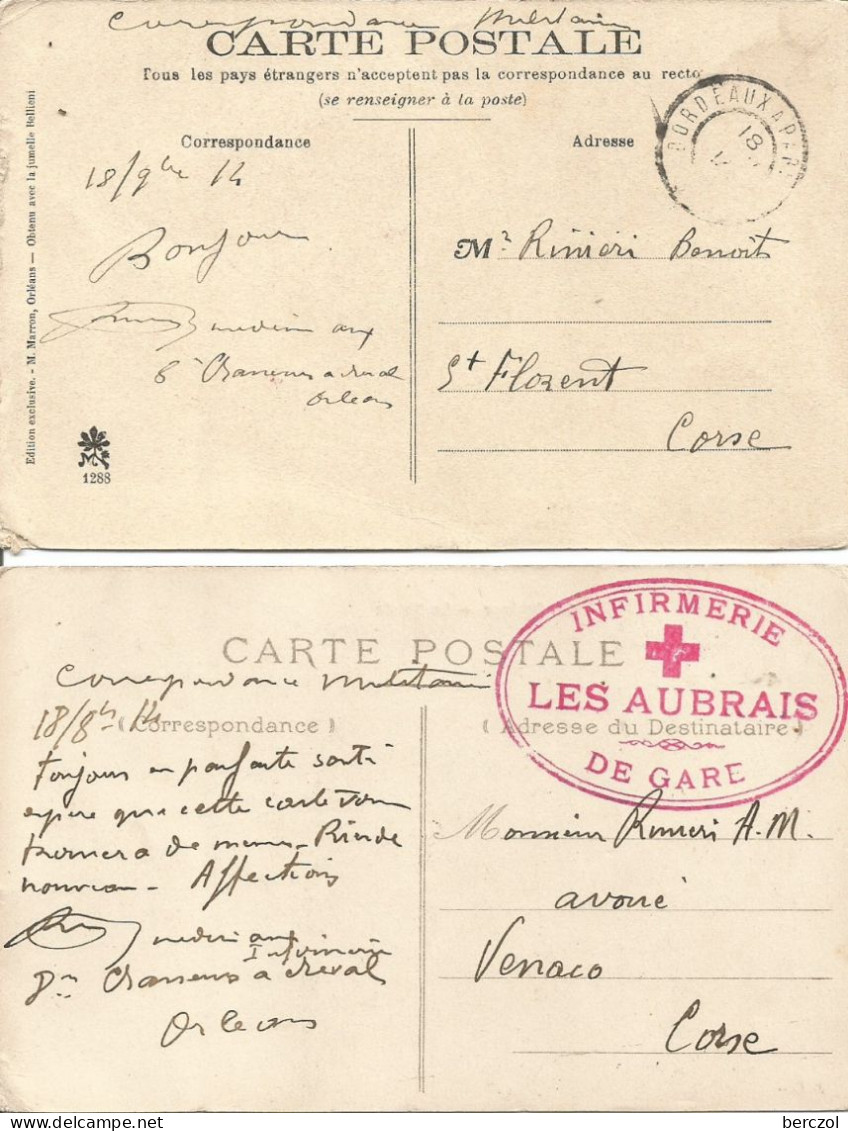 Correspondance Militaire
CARTE POSTALE
Tous les pays étrangers n'acceptent pas la correspondance au recto
(se renseigner à la poste)
Correspondance
Adresse
BORDEAUX A PARIS
18
18/9bre 14
Bonjour
médecin aux
8e Chasseurs a cheval
Orleans
Mr Rinieri Benoit
St Florent
Corse
Edition exclusive. - M. Marron, Orléans - Obtenu avec la jumelle Bellieni
1288
INFIRMERIE
LES AUBRAIS
DE GARE
CARTE POSTALE
Correspondance Militaire
18/8bre 14
(Correspondance)
(Adresse du Destinataire)
Toujours en parfaite santé
espère que cette carte vous
trouvera de meme - Rien de
nouveau - Affections
médecin aux
Infirmerie
Chasseurs a cheval
Orleans
Monsieur Rinieri A.M.
avoué
Venaco
Corse
berczol